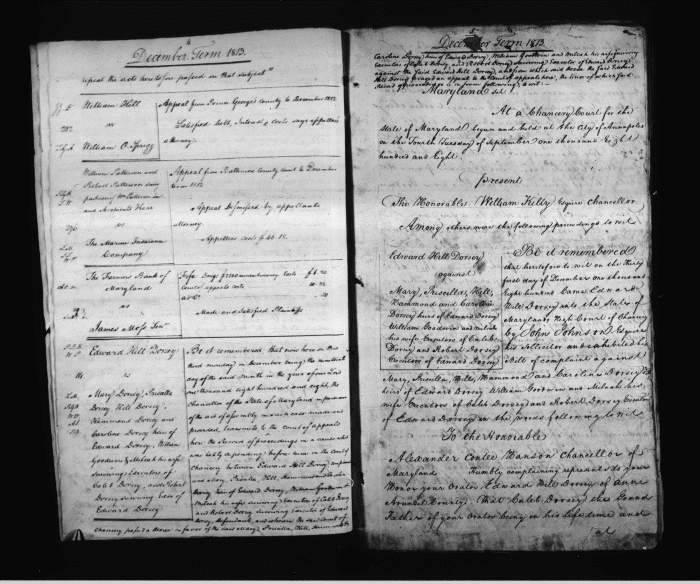 December Term 1813.
repeal the acts heretofore passed on that subject"
William Hill
vs
William O. Sprigg
Appeal from Prince George's County to December 1812
Satisfied debt, Interest & costs says appellee's
Attorney.
William Patterson and
Robert Patterson surv
The Marine Insurance
Company
Appeal from Baltimore County Court to December
term 1812
Appeal dismissed by appellants
Attorney
Appellees costs $
The Farmers Bank of
Maryland
vs
James Moss Jun.
County appeals costs
Made and Satisfied Plaintiffs
Edward Hill Dorsey
vs
Mary Dorsey, Priscilla
Dorsey Hill Dorsey,
Hammond Dorsey and
Caroline Dorsey heirs of
Edward Dorsey, William
Goodwin & Milcah his wife
surviving Executors of
Caleb Dorsey, and Robert
Dorsey surviving Exor of
Edward Dorsey
Be it remembered that now here on this
third monday in December being the
day of the said Month in the year of our Lord
one thousand eight hundred and eight, the
Chancellor of the State of Maryland in pursuance
of the act of assembly in such case made and
provided, transmits to the court of appeals
here the Record of proceedings in a cause which
was lately depending before him in the Court of
Chancery between Edward Hill Dorsey,
and Mary, Priscilla, Hill, Hammond and
Dorsey heirs of Edward Dorsey, William Goodwin and
Milcah his wife surviving Executors of Caleb Dorsey
and Robert Dorsey surviving Executor of Edward
Dorsey, Defendants, and whereon the said Court of
Chancery passed a decree in favor of the said Mary, Priscilla, Hill, Hammond &
December Term 1813.
Caroline Dorsey heirs of Edward Dorsey, William Goodwin and Milcah his wife surviving
Executors of Caleb Dorsey, and Robert Dorsey surviving Executor of Edward Dorsey
against the said Edward Hill Dorsey, and from which said decree the said Edward
Hill Dorsey prayed an appeal to the Court of appeals here, the tenor of which said
Record of proceedings is in form following, to wit.
Maryland sct
At a Chancery Court for the
State of Maryland begun and held at the City of Annapolis
on the Fourth Tuesday of September one thousand Eight
hundred and Eight.
Present
The Honorable William Kilty Esquire Chancellor.
Among others were the following proceedings to wit
Edward Hill Dorsey
against
Mary, Priscilla, Hill,
Hammond and Caroline
Dorsey heirs of Edward Dorsey
William Goodwin and Milcah
his wife, Executors of Caleb
Dorsey and Robert Dorsey
Executor of Edward Dorsey
Be it remembered
that heretofore to wit on the Thirty
first day of December one thousand
Eight hundred Came Edward
Hill Dorsey into the State of
Maryland High Court of Chancery
by John Johnson Esquire
his solicitor and exhibited his
Bill of complaint against
Mary, Priscilla, Hill, Hammond and Caroline Dorsey
heirs of Edward Dorsey William Goodwin and Milcah his
wife Executors of Caleb Dorsey and Robert Dorsey Executor
of Edward Dorsey in the words following to wit
To the Honorable
Alexander Contee Hanson Chancellor of
Maryland Humbly complaining represents to your
Honor your Orator Edward Hill Dorsey of Anne
Arundel County. That Caleb Dorsey the Grand
Father of your Orator being in his life time and